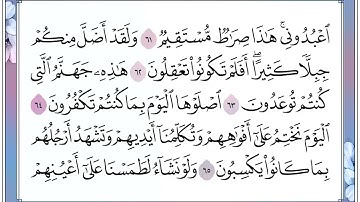 ٱعۡبُدُونِيۚ هَٰذَا صِرَٰطٞ مُّسۡتَقِيمٞ ٦١ وَلَقَدۡ أَضَلَّ مِنكُمۡ
جِبِلّٗا كَثِيرًاۖ أَفَلَمۡ تَكُونُواْ تَعۡقِلُونَ ٦٢ هَٰذِهِۦ جَهَنَّمُ ٱلَّتِي
كُنتُمۡ تُوعَدُونَ ٦٣ ٱصۡلَوۡهَا ٱلۡيَوۡمَ بِمَا كُنتُمۡ تَكۡفُرُونَ ٦٤
ٱلۡيَوۡمَ نَخۡتِمُ عَلَىٰٓ أَفۡوَٰهِهِمۡ وَتُكَلِّمُنَآ أَيۡدِيهِمۡ وَتَشۡهَدُ أَرۡجُلُهُم
بِمَا كَانُواْ يَكۡسِبُونَ ٦٥ وَلَوۡ نَشَآءُ لَطَمَسۡنَا عَلَىٰٓ أَعۡيُنِهِمۡ